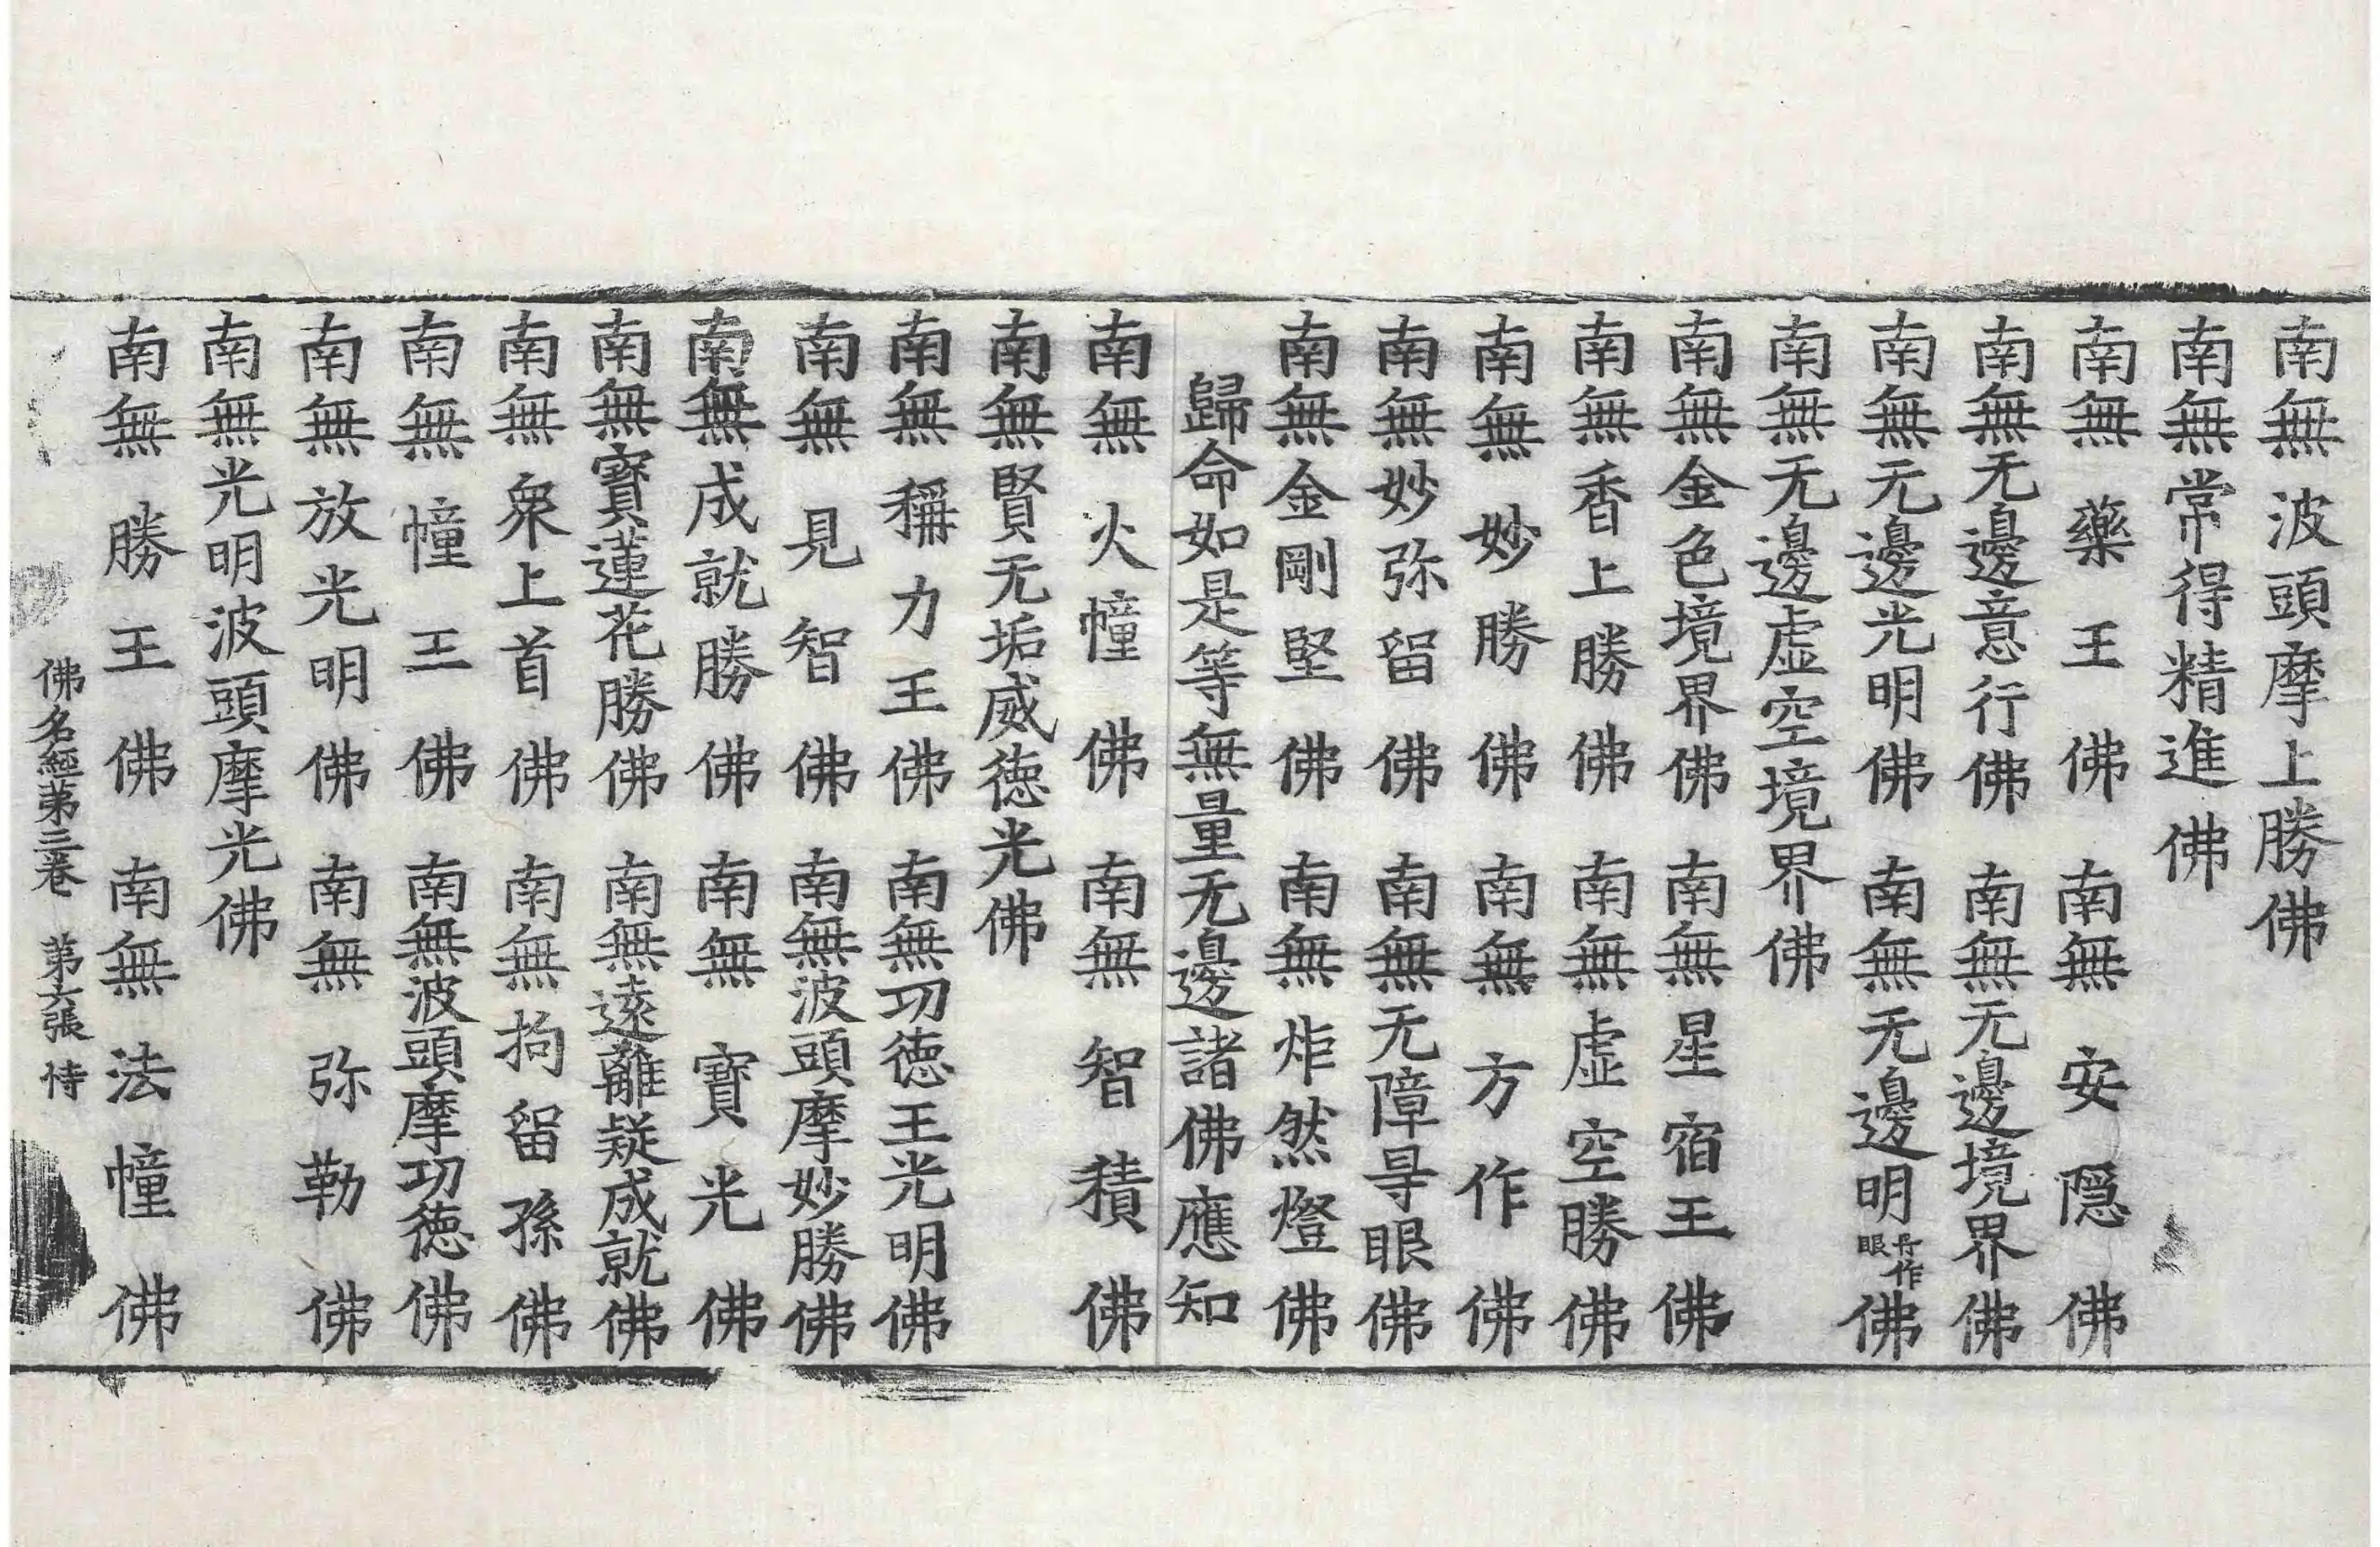 南無波頭摩上勝佛
南無常得精進佛
南無藥王佛 南無安隱佛
南無无邊意行佛 南無无邊境界佛
南無无邊光明佛 南無无邊明丹作眼佛
南無无邊虛空境界佛
南無金色境界佛 南無星宿王佛
南無香上勝佛 南無虛空勝佛
南無妙勝佛 南無方作佛
南無妙弥留佛 南無无障㝵眼佛
南無金剛堅佛 南無炸然燈佛
歸命如是等無量无邊諸佛應知
南無火幢佛 南無智積佛
南無賢无垢威德光佛
南無稱力王佛 南無功德王光明佛
南無見智佛 南無波頭摩妙勝佛
南無成就勝佛 南無寶光佛
南無寶蓮花勝佛 南無遠離疑成就佛
南無衆上首佛 南無拘留孫佛
南無幢王佛 南無波頭摩功德佛
南無放光明佛 南無弥勒佛
南無光明波頭摩光佛
南無勝王佛 南無法幢佛
佛名經第三卷 第六張 恃